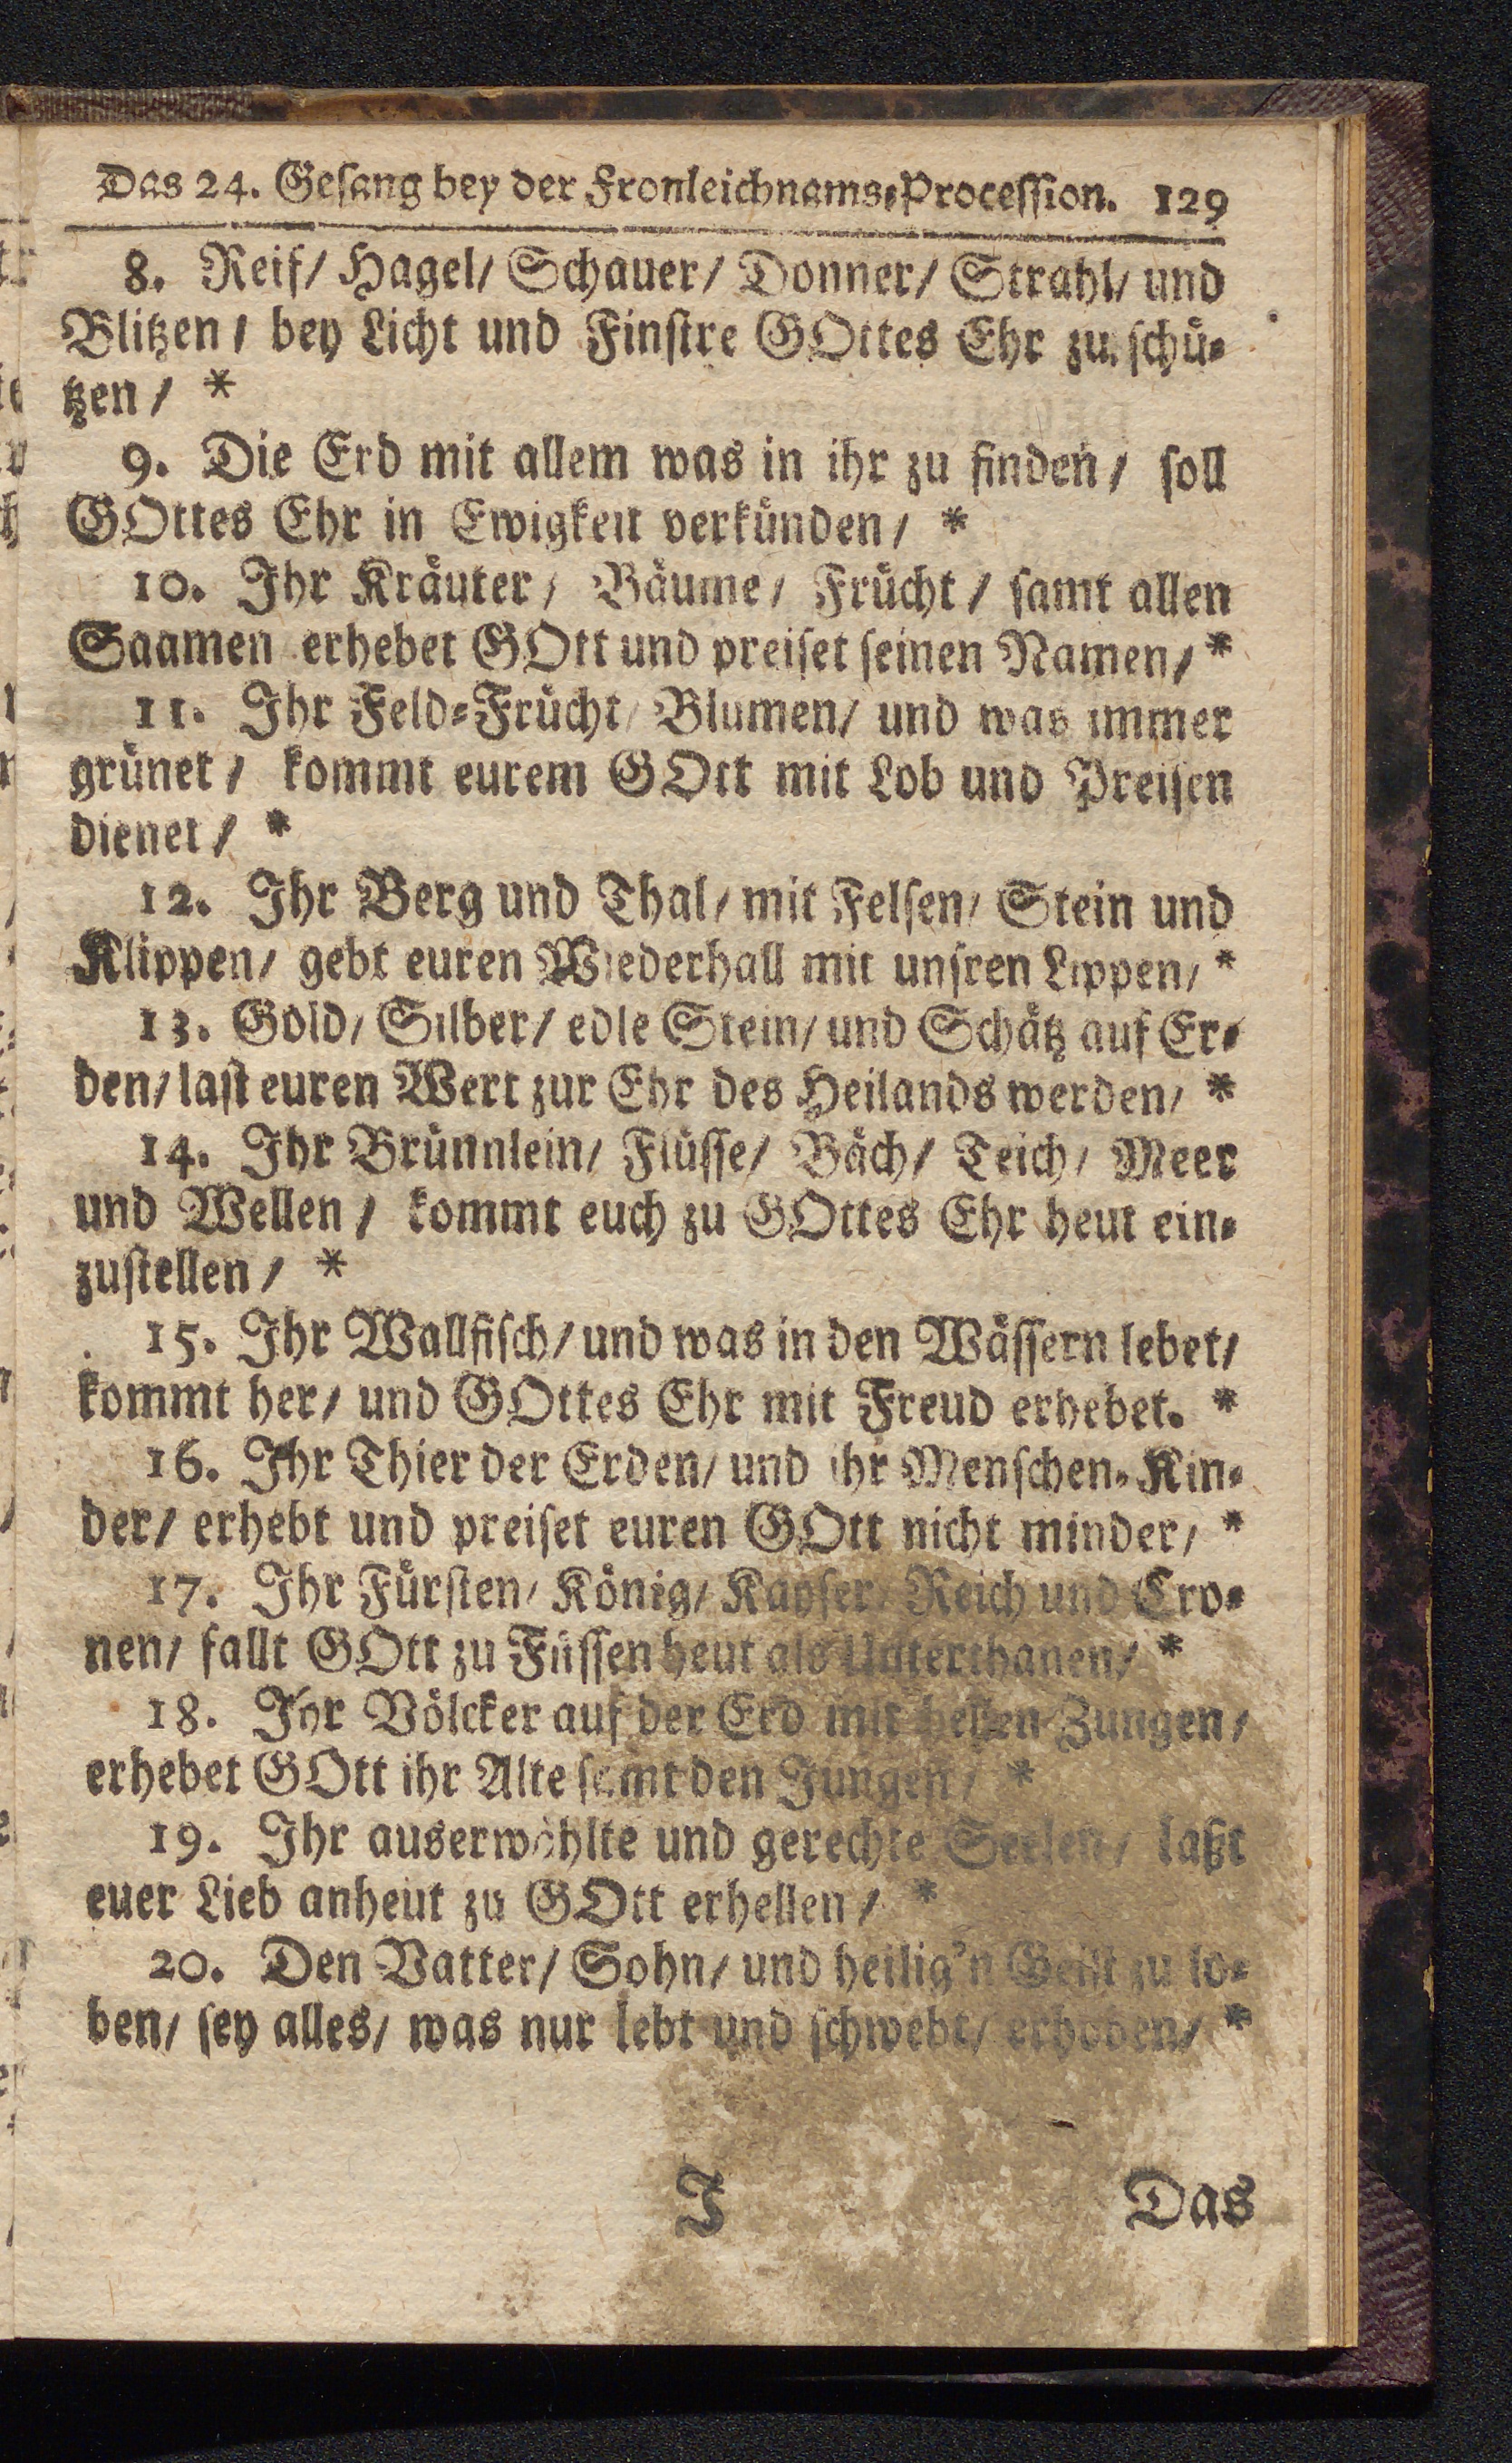 Das 24. Gesang bey der Fronleichnams-Procession. 129
8. Reif/ Hagel/ Schauer/ Donner/ Strahl/ und
Blitzen/ bey Licht und Finstre GOttes Ehr zu schü-
tzen/ *
9. Die Erd mit allem was in ihr zu finden/ soll
GOttes Ehr in Ewigkeit verkünden/ *
10. Ihr Kräuter/ Bäume/ Frücht/ samt allen
Saamen erhebet GOtt und preiset seinen Namen/ *
11. Ihr Feld-Frücht/ Blumen/ und was immer
grünet/ kommt eurem GOtt mit Lob und Preisen
dienet/ *
12. Ihr Berg und Thal/ mit Felsen/ Stein und
Klippen/ gebt euren Wiederhall mit unsren Lippen/ *
13. Gold/ Silber/ edle Stein/ und Schätz auf Er-
den/ last euren Wert zur Ehr des Heilands werden/ *
14. Ihr Brünnlein/ Flüsse/ Bäch/ Teich/ Meer
und Wellen/ kommt euch zu GOttes Ehr heut ein-
zustellen/ *
15. Ihr Wallfisch/ und was in den Wässern lebet/
kommt her/ und GOttes Ehr mit Freud erhebet. *
16. Ihr Thier der Erden/ und ihr Menschen-Kin-
der/ erhebt und preiset euren GOtt nicht minder/ *
17. Ihr Fürsten/ König/ Kayser/ Reich und Cro-
nen/ fallt GOtt zu Füssen heut als Unterthanen/ *
18. Ihr Völcker auf der Erd mit hellen Zungen/
erhebet GOtt ihr Alte samt den Jungen/ *
19. Ihr auserwählte und gerechte Seelen/ laßt
euer Lieb anheut zu GOtt erhellen/ *
20. Den Vatter/ Sohn/ und heilig'n Geist zu lo-
ben/ sey alles/ was nur lebt und schwebt/ erhoben/ *
J Das